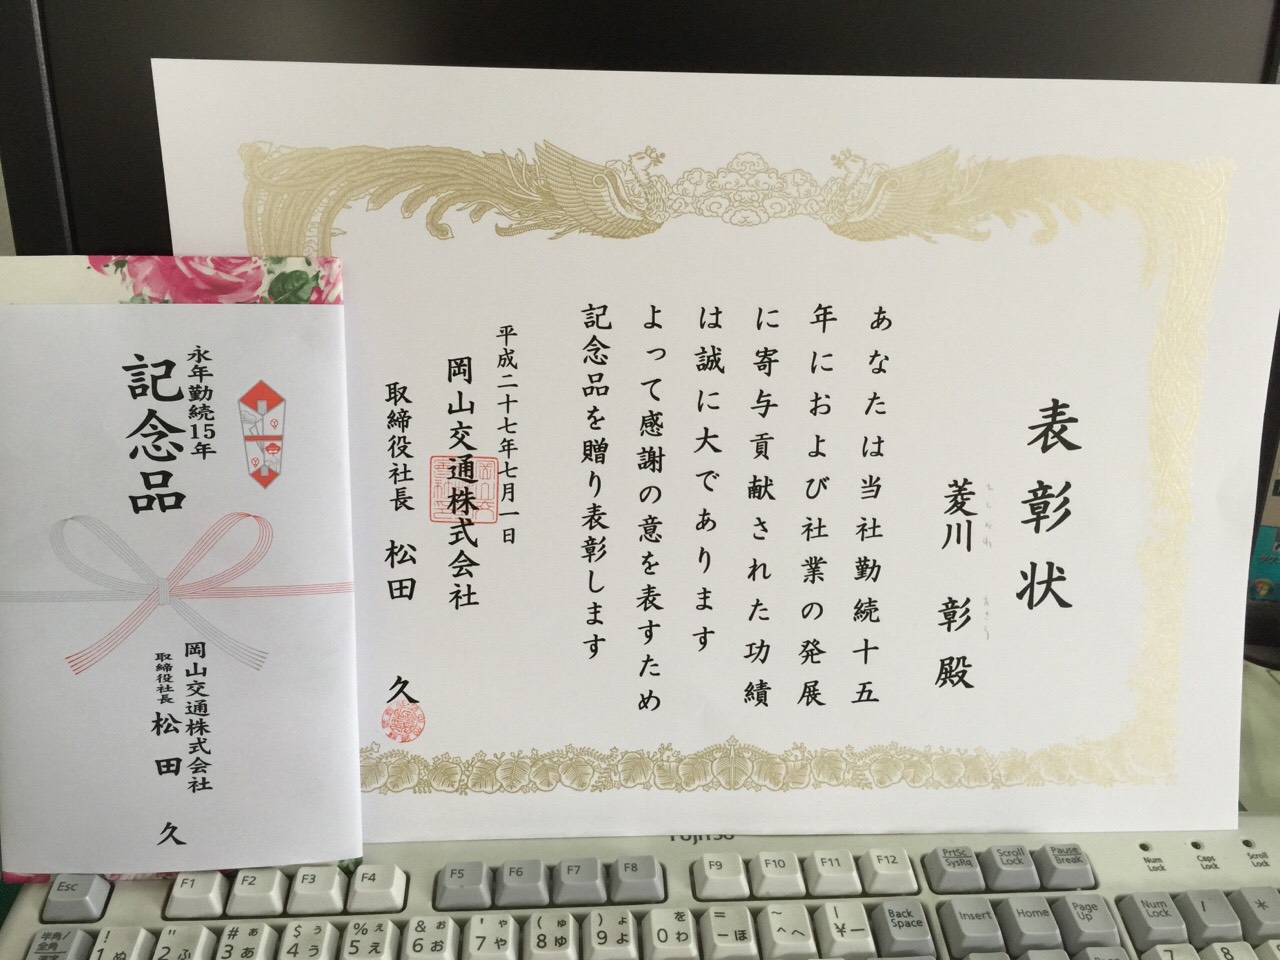 表彰状
菱川 彰 殿
あなたは当社勤続十五
年におよび社業の発展
に寄与貢献された功績
は誠に大であります
よって感謝の意を表すため
記念品を贈り表彰します
平成二十七年七月一日
岡山交通株式会社
取締役社長 松田 久
永年勤続15年
記念品
岡山交通株式会社
取締役社長 松田 久
FUJITSU
Esc F1 F2 F3 F4 F5 F6 F7 F8 F9 F10 F11 F12 PrtSc SysRq Scroll Lock Pause Break
Num Lock Caps Lock Scroll Lock
半角/全角 ! 1 ぬ " 2 ふ # 3 ぁ あ $ 4 ぅ う % 5 ぇ え & 6 ぉ お ' 7 ゃ や ( 8 ゅ ゆ ) 9 ょ よ 0 を わ = - ほ ~ ^ へ | ¥ ー Back Space Insert Home Page Up Num Lock / *
7 8